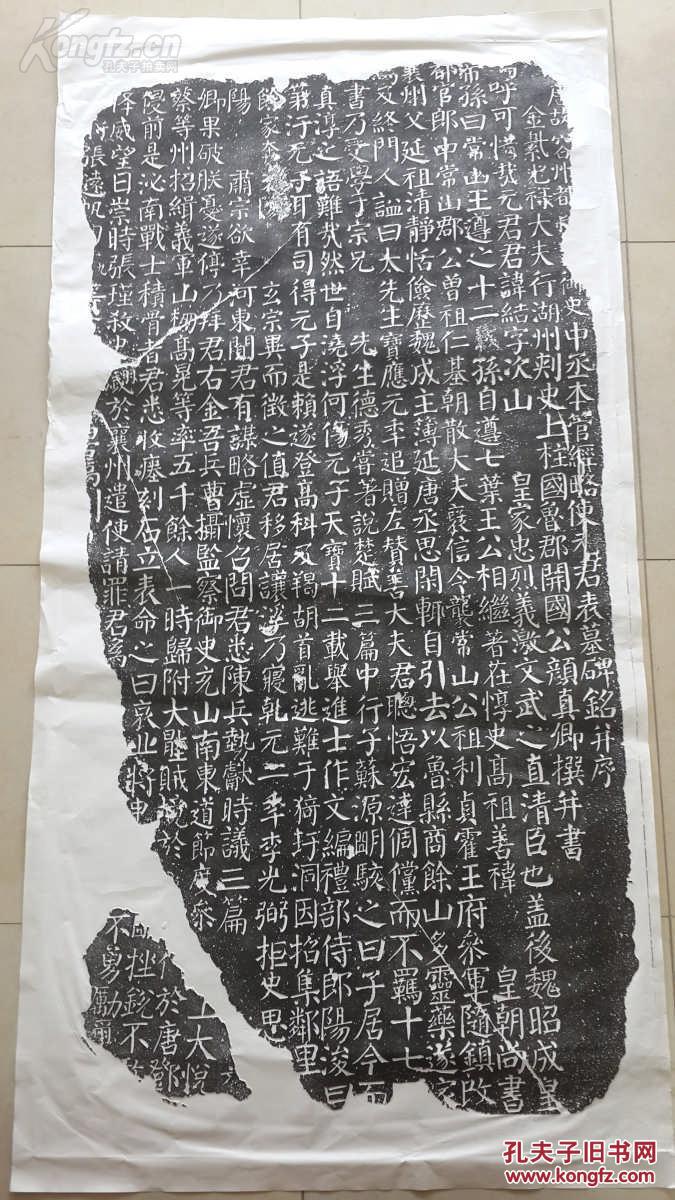 唐故容州都 御史中丞本管經略使元君表墓碑銘并序
金紫光祿大夫行湖州刾史上柱國魯郡開國公顏真卿撰并書
嗚呼可惜哉元君君諱結字次山 皇家忠烈義激文武之直清臣也蓋後魏昭成皇
帝孫曰常山王遵之十二代孫自遵七葉王公相繼著在惇史高祖善禕 皇朝尚書
都官郎中常山郡公曾祖仁基朝散大夫襃信令襲常山公祖利貞霍王府叅軍隨鎮改
襄州父延祖清靜恬儉歷魏成主薄延唐丞思閑輒自引去以魯縣商餘山多靈藥遂家
焉及終門人謚曰太先生寶應元年追贈左贊善大夫君聰悟宏達倜儻而不羈十七
書乃受學于宗兄 先生德秀嘗著說楚賦三篇中行子蘇源明駭之曰子居今而
真淳之語難哉然世自澆浮何傷元子天寶十二載舉進士作文編禮部侍郎陽浚曰
第汙元子耳有司得元子是賴遂登高科及羯胡首亂逃難于猗玗洞因招集鄰里
餘家奔襄陽 玄宗異而徵之值君移居讓溪乃寢乾元二年李光弼拒史思
陽 肅宗欲幸河東聞君有謀略虛懷召問君悉陳兵埶獻時議三篇 上大悅
卿果破朕憂遂停乃拜君右金吾兵曹攝監察御史充山南東道節度叅 於唐鄧
蔡等州招緝義軍山棚高晃等率五千餘人一時歸附大壓賊境於 挫銳不
侵前是泌南戰士積骨者君悉收瘞刻石立表命之曰哀丘將史 不勇勵
降威望日崇時張瑾殺史翽於襄州遣使請罪君為
張遠帆
Kongfz.cn
孔夫子拍卖网
孔夫子旧书网
www.kongfz.com